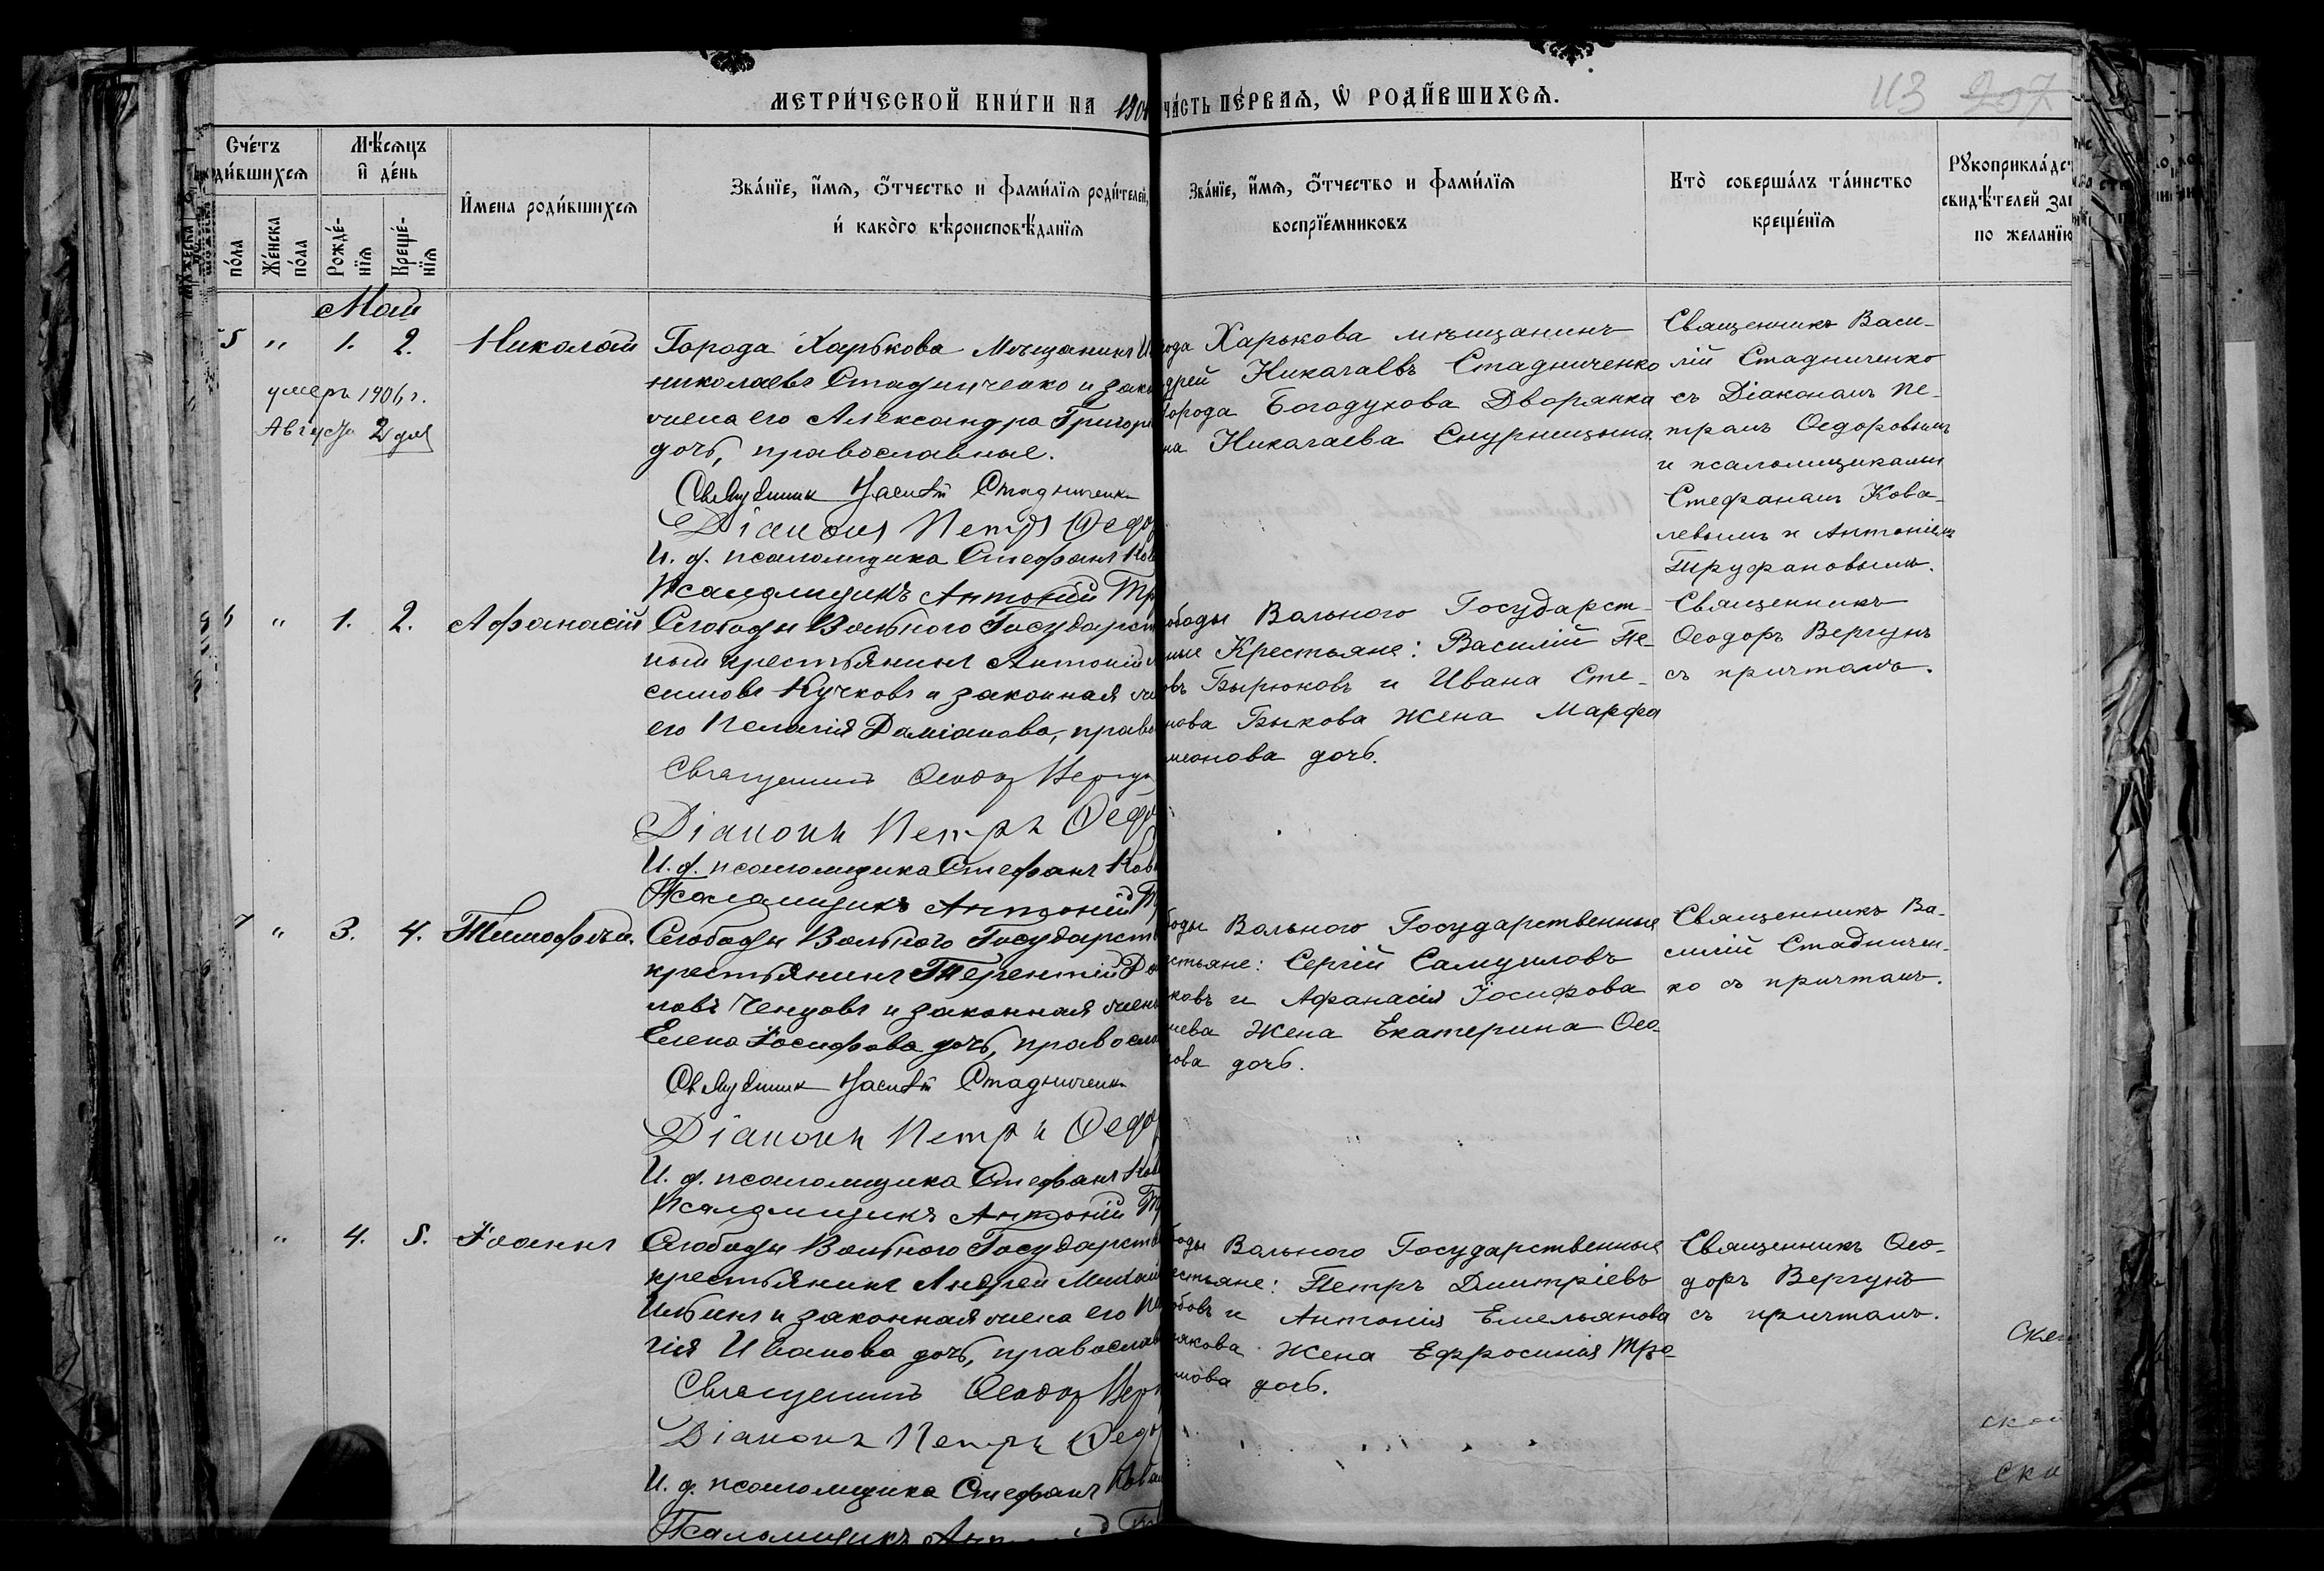 МЕТРИ́ЧЕСКОЙ КНИ́ГИ НА 190
ЧА́СТЬ ПЕ́РВАѦ, Ѡ҆ РОДИ́ВШИХСѦ.
113 207
Сче́тъ
роди́вшихсѧ
Мѣ́сѧцъ
и҆ де́нь
по́ла
Же́нска
по́ла
Рожде́-
нїѧ
Креще́-
нїѧ
И҆мена роди́вшихсѧ
Зва́нїе, и҆́мѧ, ѻ҆́тчество и фами́лїѧ роди́телей,
и҆ како́гѡ вѣроисповѣ́данїѧ
Зва́нїе, и҆́мѧ, ѻ҆́тчество и фами́лїѧ
воспрїе́мниковъ
Кто̀ соверша́лъ та́инство
креще́нїѧ
Рꙋкоприкла́дст
свидѣ́телей зап
по жела́нїю
Май
5 " 1. 2. Николай
умеръ 1906 г.
Августа 2 дня
Города Харькова Мѣщанинъ И
николаевъ Стадниченко и зако
жена его Александра Григорь
дочь, православные.
Священник Василій Стадниченко
Діаконъ Петръ Ѳедо
И. д. псаломщика Стефанъ Ков
Псаломщикъ Антоній Тр
рода Харькова мѣщанинъ
дрей Николаевъ Стадниченко
Города Богодухова Дворянка
на Николаева Снурницына
Священникъ Васи-
лій Стадниченко
съ Діакономъ Пе-
тромъ Ѳедоровымъ
и псаломщиками
Стефаномъ Кова-
левымъ и Антоніемъ
Труфановымъ.
6 " 1. 2. Афанасій
Слободы Вольного Государст
ный крестьянинъ Антоній
симовъ Кучковъ и законная же
его Пелагія Даміанова, право
Священникъ Ѳеодор Вергун
Діаконъ Петръ Ѳедо
И. д. псаломщика Стефанъ Ков
Псаломщикъ Антоній Т
ободы Вольного Государст-
ные Крестьяне: Василій Пе-
овъ Бырюковъ и Ивана Сте-
нова Быкова жена Марфа
меонова дочь.
Священникъ
Ѳеодоръ Вергунъ
съ причтомъ.
7 " 3. 4. Тимофѣй.
Слободы Вольного Государст
крестьянинъ Терентій Да
ловъ Ченцовъ и законная жен
Елена Іосифова дочь, правосла
Священник Василій Стадниченко
Діаконъ Петръ Ѳедо
И. д. псаломщика Стефанъ Ков
Псаломщикъ Антоній Т
боды Вольного Государственные
стьяне: Сергій Самуиловъ
ковъ и Афанасія Іосифова
чева жена Екатерина Ѳео-
рова дочь.
Священникъ Ва-
силій Стадничен-
ко съ причтомъ.
" 4. 5. Іоаннъ
Слободы Вольного Государств
крестьянинъ Андрей Михай
Ильинъ и законная жена его Пел
гія Иванова дочь, православ
Священникъ Ѳеодор Верг
Діаконъ Петръ Ѳедо
И. д. псаломщика Стефанъ Ковал
Псаломщикъ
боды Вольного Государственные
естьяне: Петръ Дмитріевъ
обовъ и Антонія Емельянова
някова жена Ефросинія Тро-
мова дочь.
Священникъ Ѳео-
доръ Вергунъ
съ причтомъ.
ской
ски